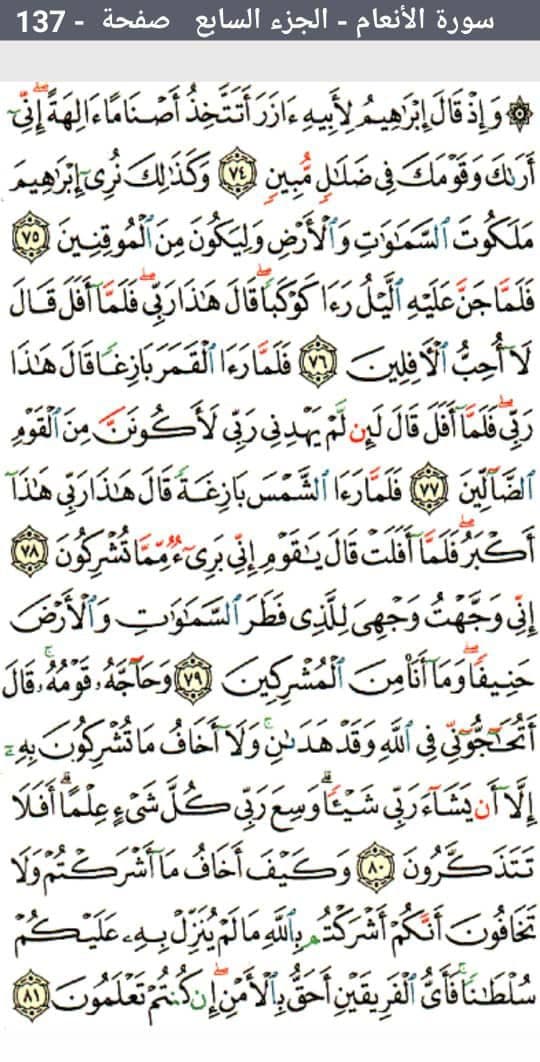 سورة الأنعام - الجزء السابع صفحة - 137
۞ وَإِذْ قَالَ إِبْرَٰهِيمُ لِأَبِيهِ ءَازَرَ أَتَتَّخِذُ أَصْنَامًا ءَالِهَةً ۖ إِنِّىٓ
أَرَىٰكَ وَقَوْمَكَ فِى ضَلَٰلٍ مُّبِينٍ ٧٤ وَكَذَٰلِكَ نُرِىٓ إِبْرَٰهِيمَ
مَلَكُوتَ ٱلسَّمَٰوَٰتِ وَٱلْأَرْضِ وَلِيَكُونَ مِنَ ٱلْمُوقِنِينَ ٧٥
فَلَمَّا جَنَّ عَلَيْهِ ٱلَّيْلُ رَءَا كَوْكَبًا ۖ قَالَ هَٰذَا رَبِّى ۖ فَلَمَّآ أَفَلَ قَالَ
لَآ أُحِبُّ ٱلْءَافِلِينَ ٧٦ فَلَمَّا رَءَا ٱلْقَمَرَ بَازِغًا قَالَ هَٰذَا
رَبِّى ۖ فَلَمَّآ أَفَلَ قَالَ لَئِن لَّمْ يَهْدِنِى رَبِّى لَأَكُونَنَّ مِنَ ٱلْقَوْمِ
ٱلضَّآلِّينَ ٧٧ فَلَمَّا رَءَا ٱلشَّمْسَ بَازِغَةً قَالَ هَٰذَا رَبِّى هَٰذَآ
أَكْبَرُ ۖ فَلَمَّآ أَفَلَتْ قَالَ يَٰقَوْمِ إِنِّى بَرِىٓءٌ مِّمَّا تُشْرِكُونَ ٧٨
إِنِّى وَجَّهْتُ وَجْهِىَ لِلَّذِى فَطَرَ ٱلسَّمَٰوَٰتِ وَٱلْأَرْضَ
حَنِيفًا ۖ وَمَآ أَنَا۠ مِنَ ٱلْمُشْرِكِينَ ٧٩ وَحَآجَّهُۥ قَوْمُهُۥ ۚ قَالَ
أَتُحَٰٓجُّوٓنِّى فِى ٱللَّهِ وَقَدْ هَدَىٰنِ ۚ وَلَآ أَخَافُ مَا تُشْرِكُونَ بِهِۦٓ
إِلَّآ أَن يَشَآءَ رَبِّى شَيْـًٔا ۗ وَسِعَ رَبِّى كُلَّ شَىْءٍ عِلْمًا ۗ أَفَلَا
تَتَذَكَّرُونَ ٨٠ وَكَيْفَ أَخَافُ مَآ أَشْرَكْتُمْ وَلَا
تَخَافُونَ أَنَّكُمْ أَشْرَكْتُم بِٱللَّهِ مَا لَمْ يُنَزِّلْ بِهِۦ عَلَيْكُمْ
سُلْطَٰنًا ۚ فَأَىُّ ٱلْفَرِيقَيْنِ أَحَقُّ بِٱلْأَمْنِ ۖ إِن كُنتُمْ تَعْلَمُونَ ٨١